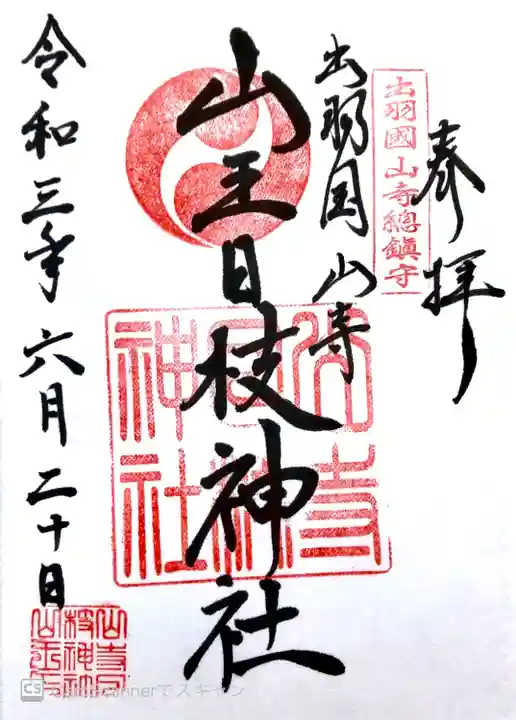 奉拝
出羽國山寺總鎮守
出羽国山寺
山王日枝神社
山寺日枝神社
令和三年六月二十日
CS CamScannerでスキャン